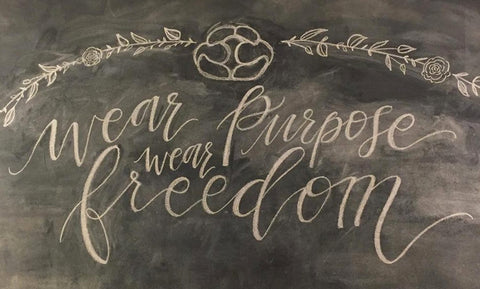 wear Purpose
wear
freedom